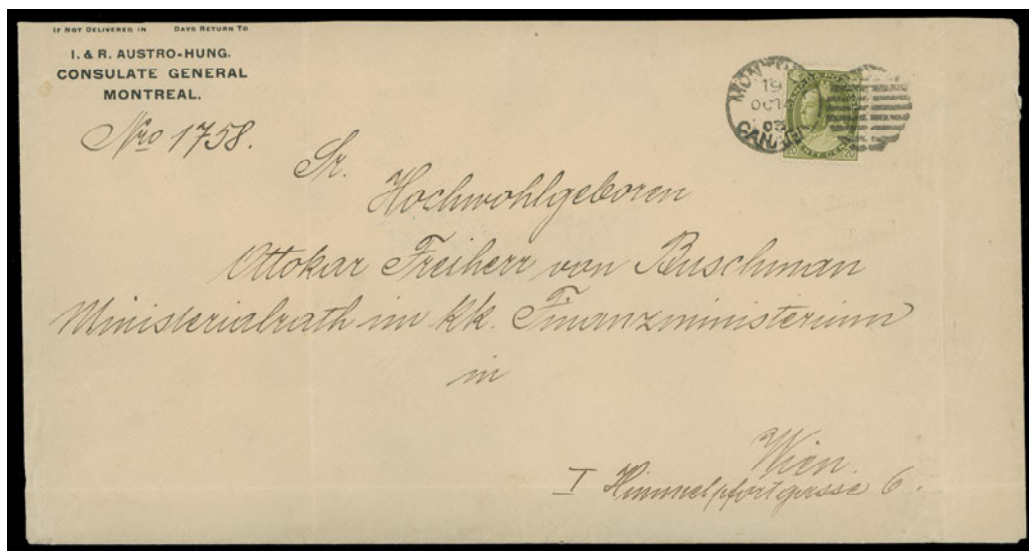 IF NOT DELIVERED IN DAYS RETURN TO
I. & R. AUSTRO-HUNG.
CONSULATE GENERAL
MONTREAL.
Nro 1758.
MONTREAL
19
OCT
03
CANADA
20 20
Sr.
Hochwohlgeboren
Ottokar Freiherr von Buschman
Ministerialrath im kk. Finanzministerium
in
Wien.
I Himmelpfortgasse 6.